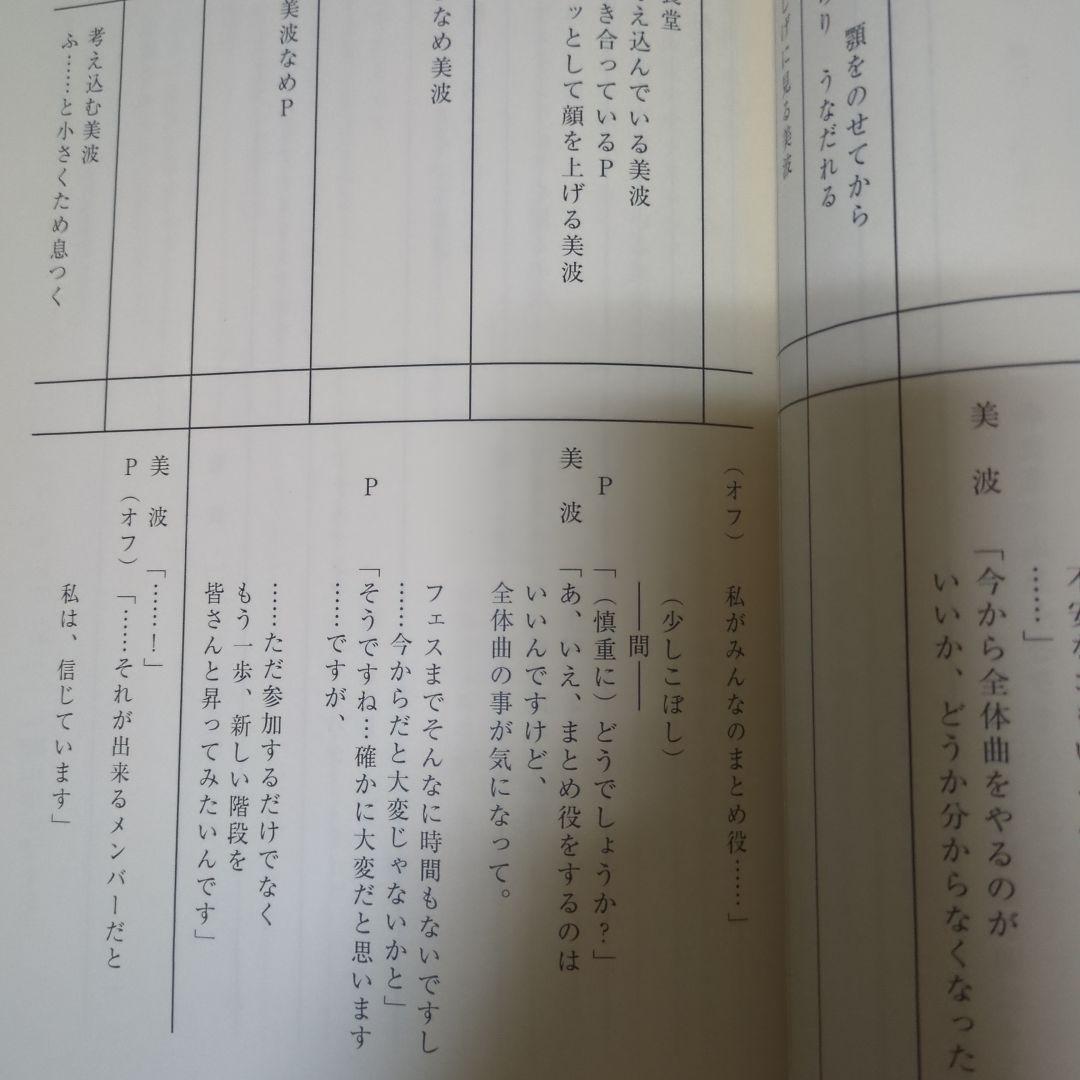 顎をのせてから
うなだれる
げに見る美波
美　波　「今から全体曲をやるのが
いいか、どうか分からなくなった
……」
食堂
え込んでいる美波
き合っているP
ッとして顔を上げる美波
なめ美波
美波なめP
考え込む美波
ふ……と小さくため息つく
（オフ）　私がみんなのまとめ役……」
（少しこぼし）
――間――
P　「（慎重に）どうでしょうか？」
美　波　「あ、いえ、まとめ役をするのは
いいんですけど、
全体曲の事が気になって。
フェスまでそんなに時間もないですし
……今からだと大変じゃないかと」
P　「そうですね…確かに大変だと思います
……ですが、
……ただ参加するだけでなく
もう一歩、新しい階段を
皆さんと昇ってみたいんです」
美　波　「……！」
P（オフ）「……それが出来るメンバーだと
私は、信じています」